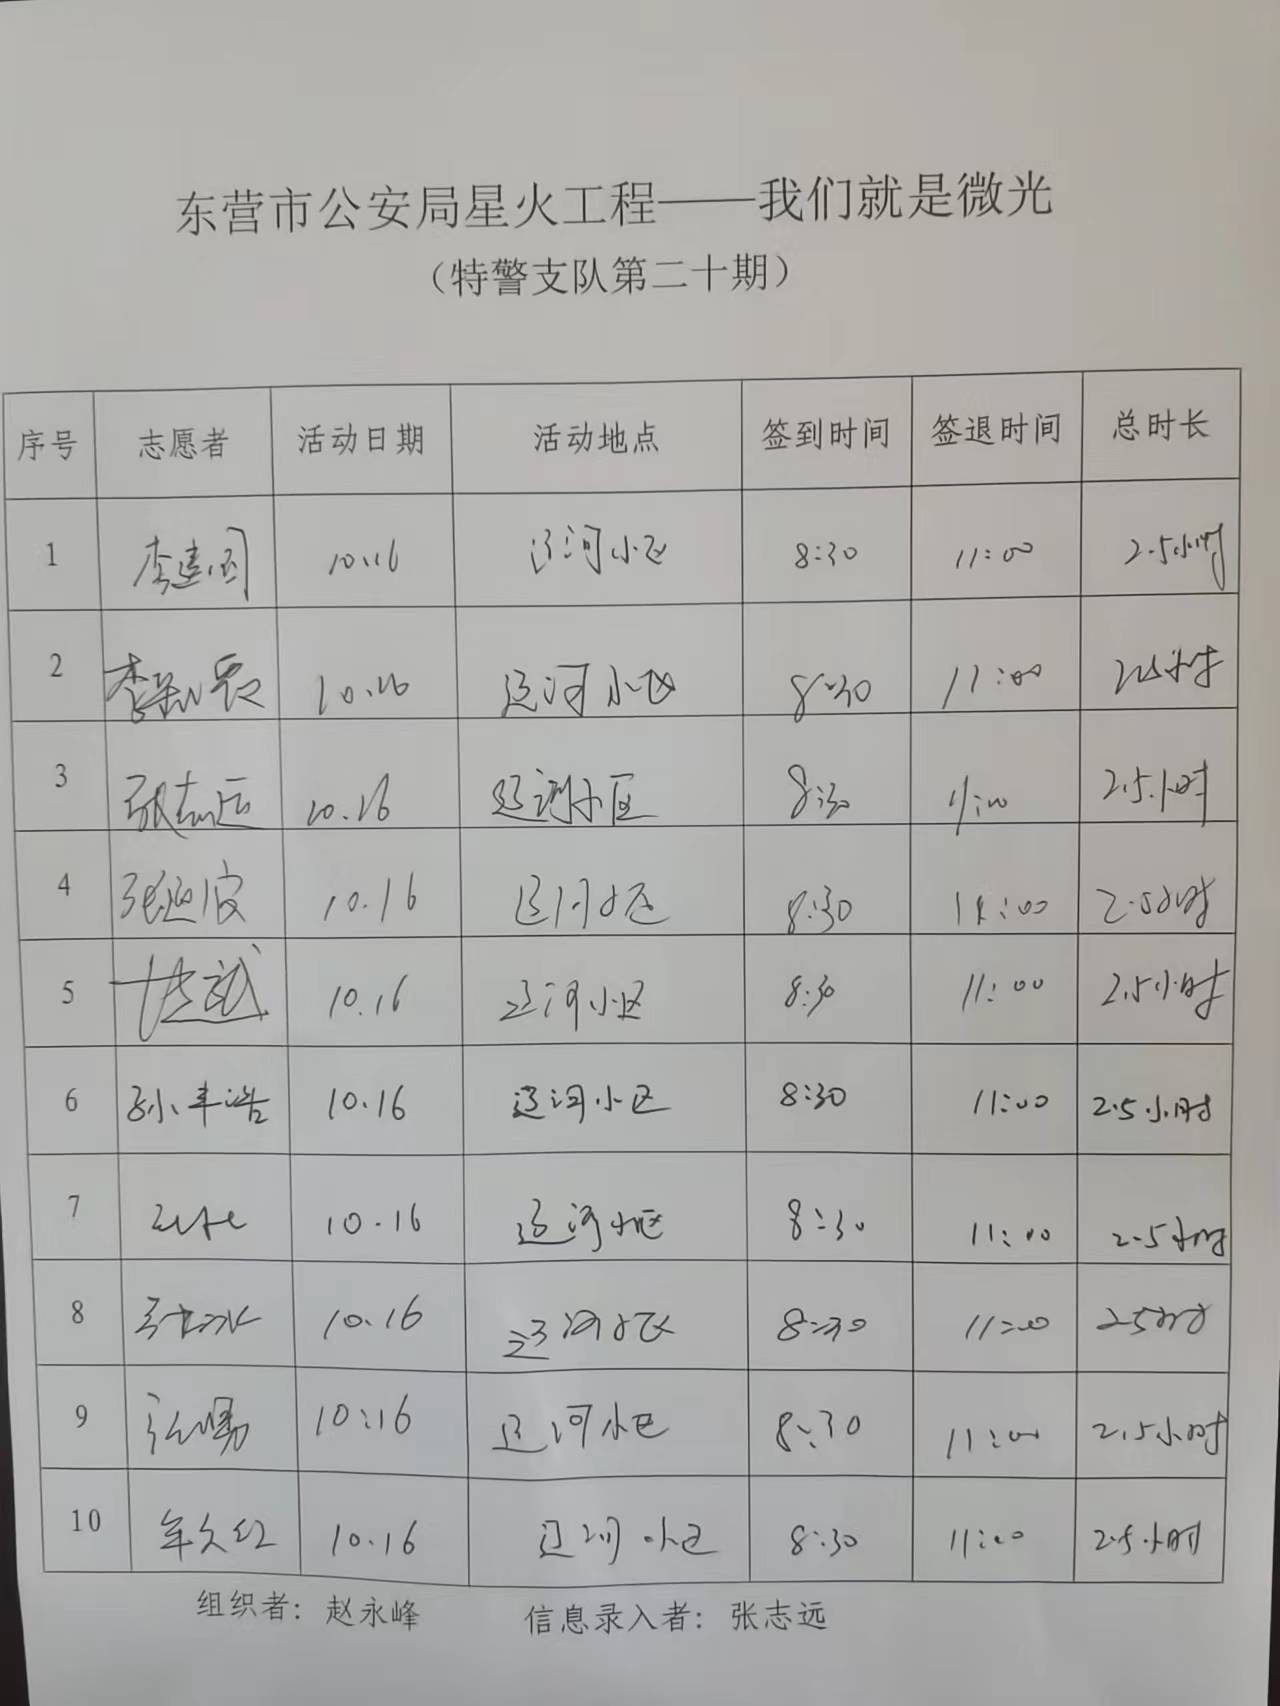 东营市公安局星火工程——我们就是微光
（特警支队第二十期）
序号 志愿者 活动日期 活动地点 签到时间 签退时间 总时长
1 李建国 10.16 辽河小区 8:30 11:00 2.5小时
2 10.16 辽河小区 8:30 11:00 2.5小时
3 张志远 10.16 辽河小区 8:30 11:00 2.5小时
4 10.16 辽河小区 8:30 11:00 2.5小时
5 10.16 辽河小区 8:30 11:00 2.5小时
6 孙丰浩 10.16 辽河小区 8:30 11:00 2.5小时
7 10.16 辽河小区 8:30 11:00 2.5小时
8 10.16 辽河小区 8:30 11:00 2.5小时
9 10:16 辽河小区 8:30 11:00 2.5小时
10 10.16 辽河小区 8:30 11:00 2.5小时
组织者：赵永峰 信息录入者：张志远